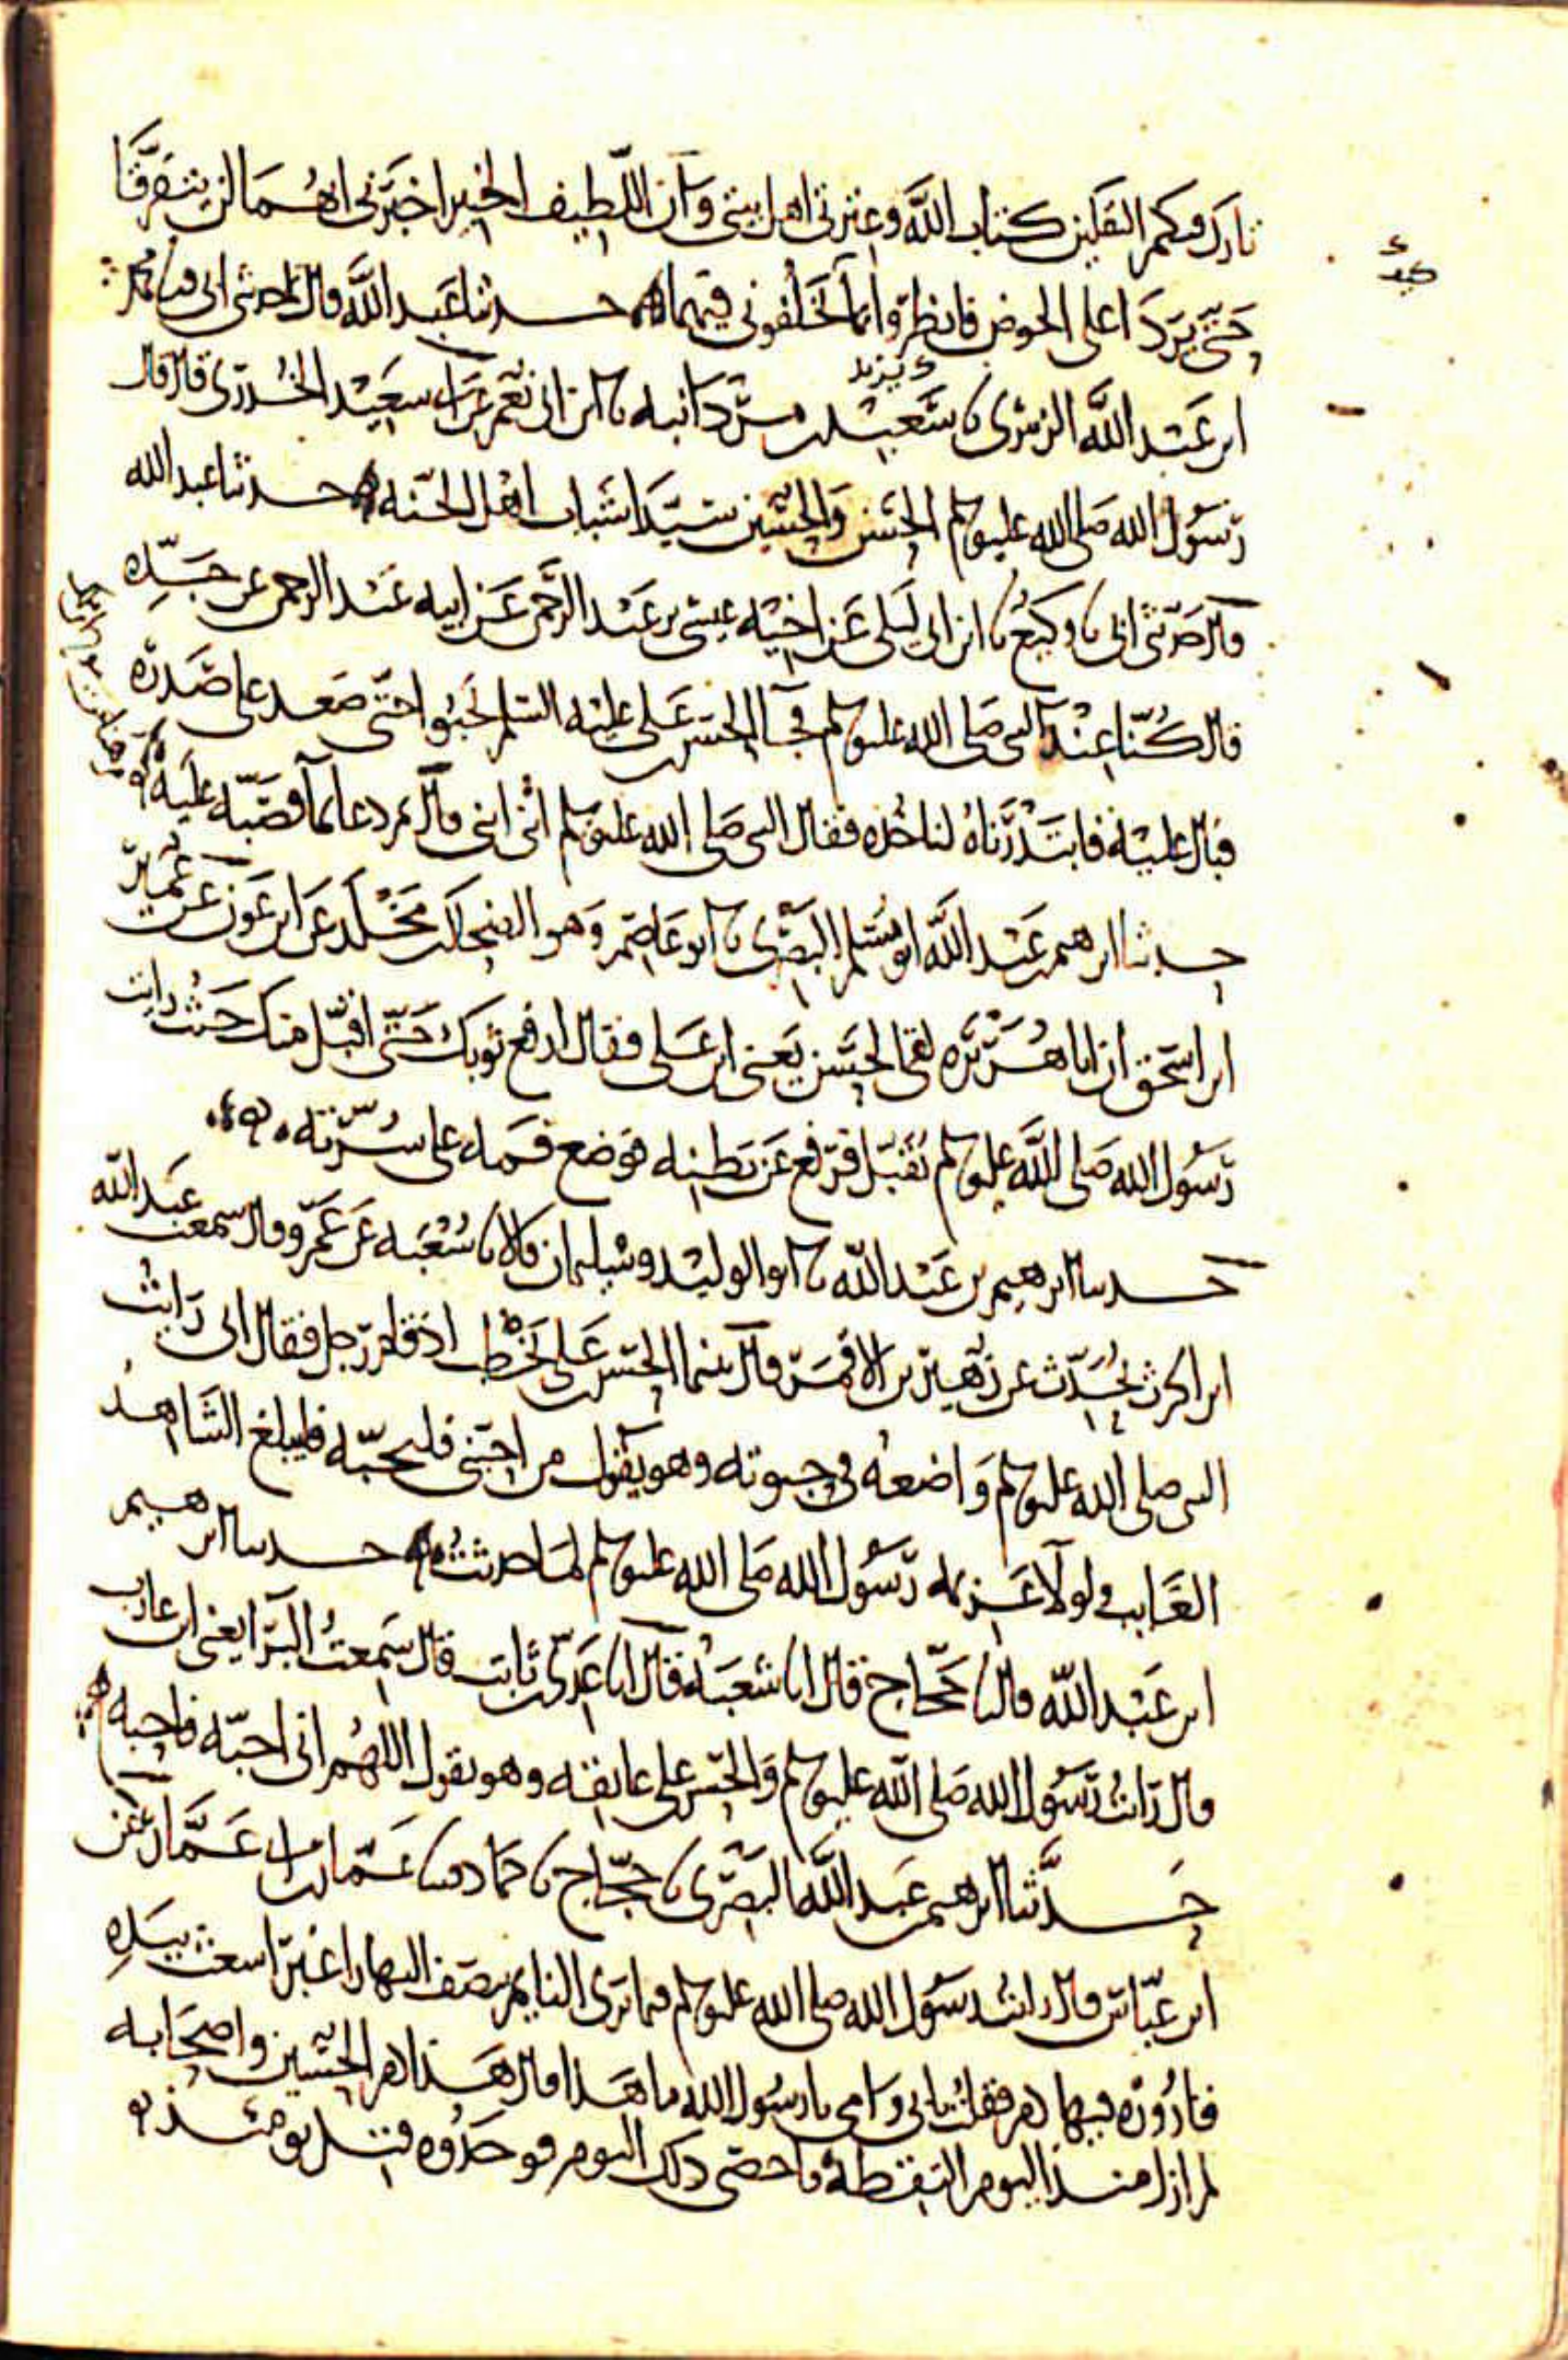 تارك فيكم الثقلين كتاب الله وعترتي اهل بيتي وان اللطيف الخبير اخبرني انهما لن يتفرقا
حتى يردا على الحوض فانظروا بما تخلفوني فيهما حدثنا عبد الله قال حدثني ابي نا محمد
ابن عبد الله الزبيري نا يزيد بن مردانبه نا ابن ابي نعم عن ابي سعيد الخدري قال قال
رسول الله صلى الله عليه وسلم الحسن والحسين سيدا شباب اهل الجنه حدثنا عبد الله
قال حدثني ابي نا وكيع نا ابن ابي ليلى عن اخيه عيسى بن عبد الرحمن عن ابيه عبد الرحمن عن جده
قال كنا عند النبي صلى الله عليه وسلم فجا الحسن بن علي عليه السلم يحبوا حتى صعد على صدره
فبال عليه فابتدرناه لناخذه فقال النبي صلى الله عليه وسلم ابني ابني قال ثم دعا بما فصبه عليه
حدثنا ابرهيم بن عبد الله ابو مسلم البصري نا ابو عاصم وهو الضحاك بن مخلد عن ابن عون عن عمير
ابن اسحق ان ابا هريره لقي الحسن يعني ابن علي فقال ارفع ثوبك حتى اقبل منك حيث رايت
رسول الله صلى الله عليه وسلم يقبل فرفع عن بطنه فوضع فمه على سرته
حدثنا ابرهيم بن عبد الله نا ابو الوليد وسليمان قالا نا شعبه عن عمرو قال سمعت عبد الله
ابن الحرث يحدث عن زهير بن الاقمر قال بينما الحسن بن علي يخطب اذ قام رجل فقال اني رايت
النبي صلى الله عليه وسلم واضعه في حبوته وهو يقول من احبني فليحبه فليبلغ الشاهد
الغايب ولولا عزمه رسول الله صلى الله عليه وسلم لما حدثت حدثنا ابرهيم
ابن عبد الله قال نا حجاج قال انا شعبه قال انا عدي بن ثابت قال سمعت البرا يعني ابن عازب
قال رايت رسول الله صلى الله عليه وسلم والحسن على عاتقه وهو يقول اللهم اني احبه فاحبه
حدثنا ابرهيم بن عبد الله البصري نا حجاج نا حماد نا عمار بن ابي عمار عن
ابن عباس قال رايت رسول الله صلى الله عليه وسلم فيما يرى النايم بنصف النهار اغبر اشعث بيده
قاروره فيها دم فقلت بابي وامي يا رسول الله ما هذا قال هذا دم الحسين واصحابه
لم ازل منذ اليوم التقطه فاحصي ذلك اليوم فوجدوه قتل يومئذ